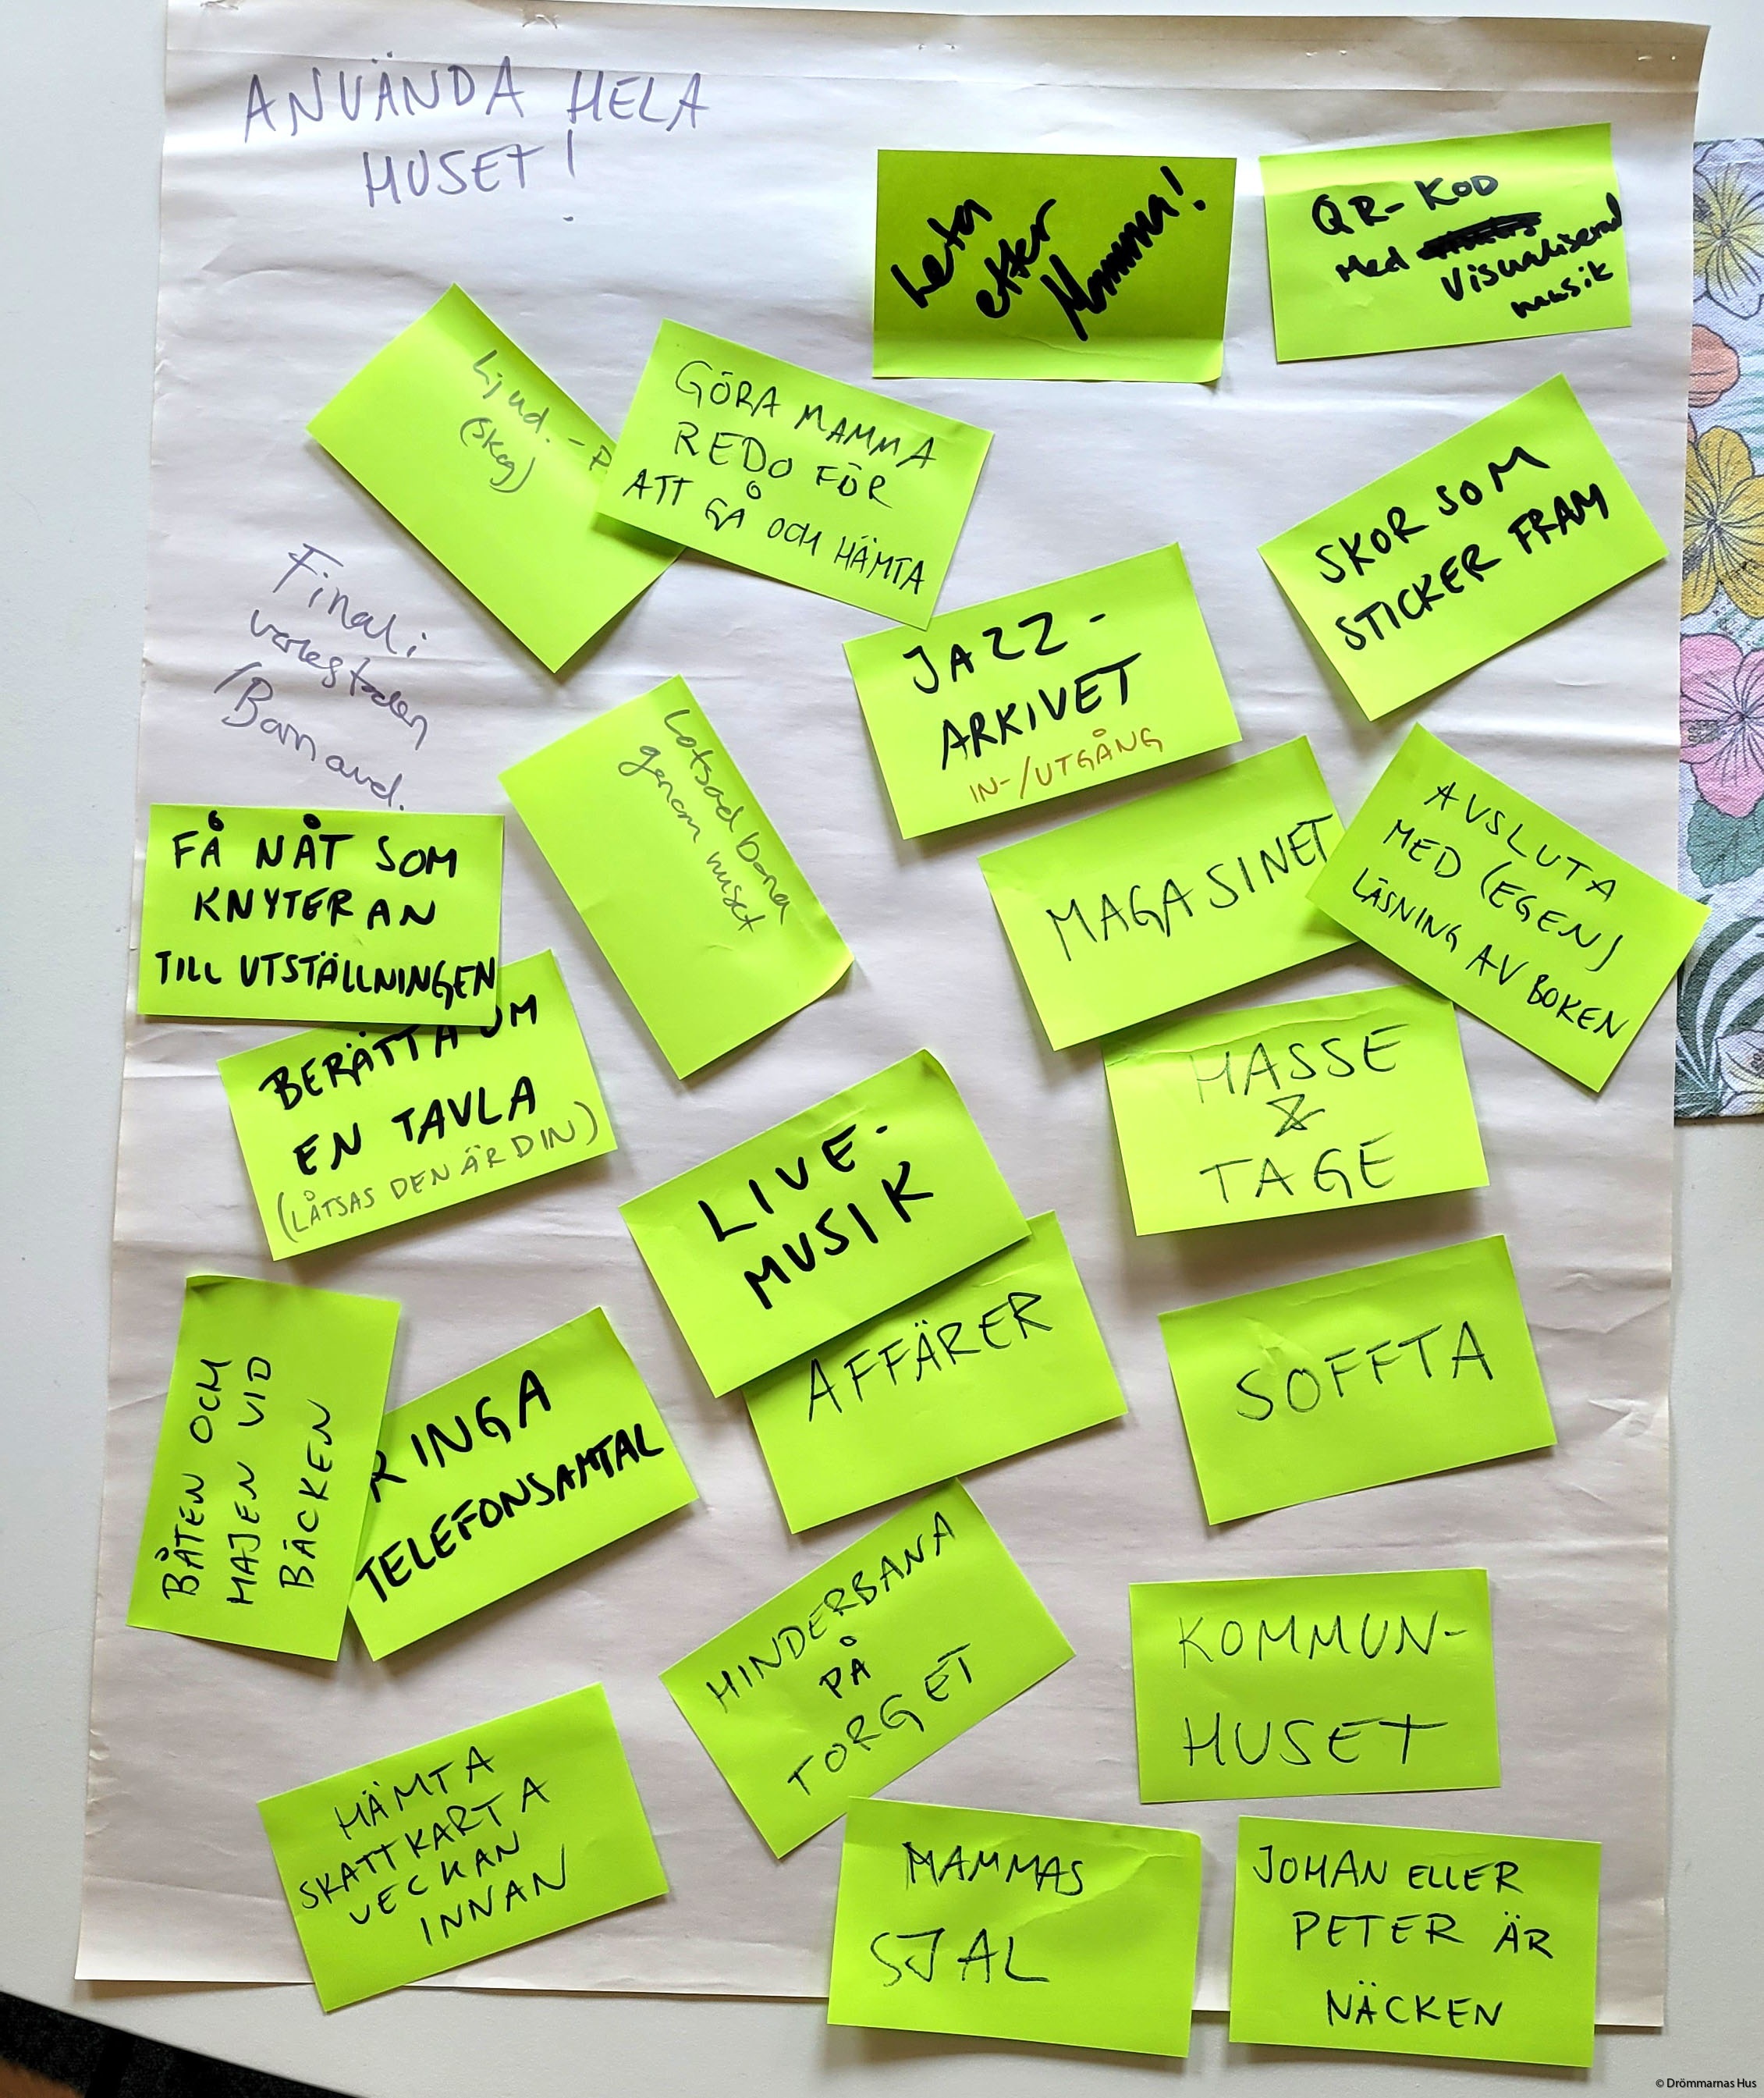 ANVÄNDA HELA
HUSET!
Leta
efter
Mamma!
QR-KOD
Med
Visualiserad
musik
Ljud.-
(skog)
GÖRA MAMMA
REDO FÖR
ATT GÅ OCH HÄMTA
SKOR SOM
STICKER FRAM
Final i
verkstaden
/Barnavd.
JAZZ-
ARKIVET
IN-/UTGÅNG
Lotsad bana
genom huset
MAGASINET
AVSLUTA
MED (EGEN)
LÄSNING AV BOKEN
FÅ NÅT SOM
KNYTER AN
TILL UTSTÄLLNINGEN
BERÄTTA OM
EN TAVLA
(LÅTSAS DEN ÄR DIN)
HASSE
&
TAGE
LIVE-
MUSIK
AFFÄRER
SOFFTA
BÅTEN OCH
HAJEN VID
BÄCKEN
RINGA
TELEFONSAMTAL
HINDERBANA
PÅ
TORGET
KOMMUN-
HUSET
HÄMTA
SKATTKARTA
VECKAN
INNAN
MAMMAS
SJAL
JOHAN ELLER
PETER ÄR
NÄCKEN
© Drömmarnas Hus